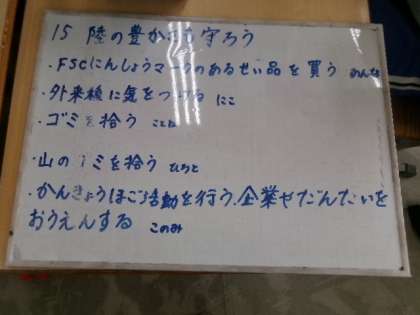 15 陸の豊かさも守ろう
・FSCにんしょうマークのあるせい品を買う みんな
・外来種に気をつける にこ
・ゴミを拾う ことね
・山のゴミを拾う ひろと
・かんきょうほご活動を行う、企業やだんたいを
おうえんする このみ